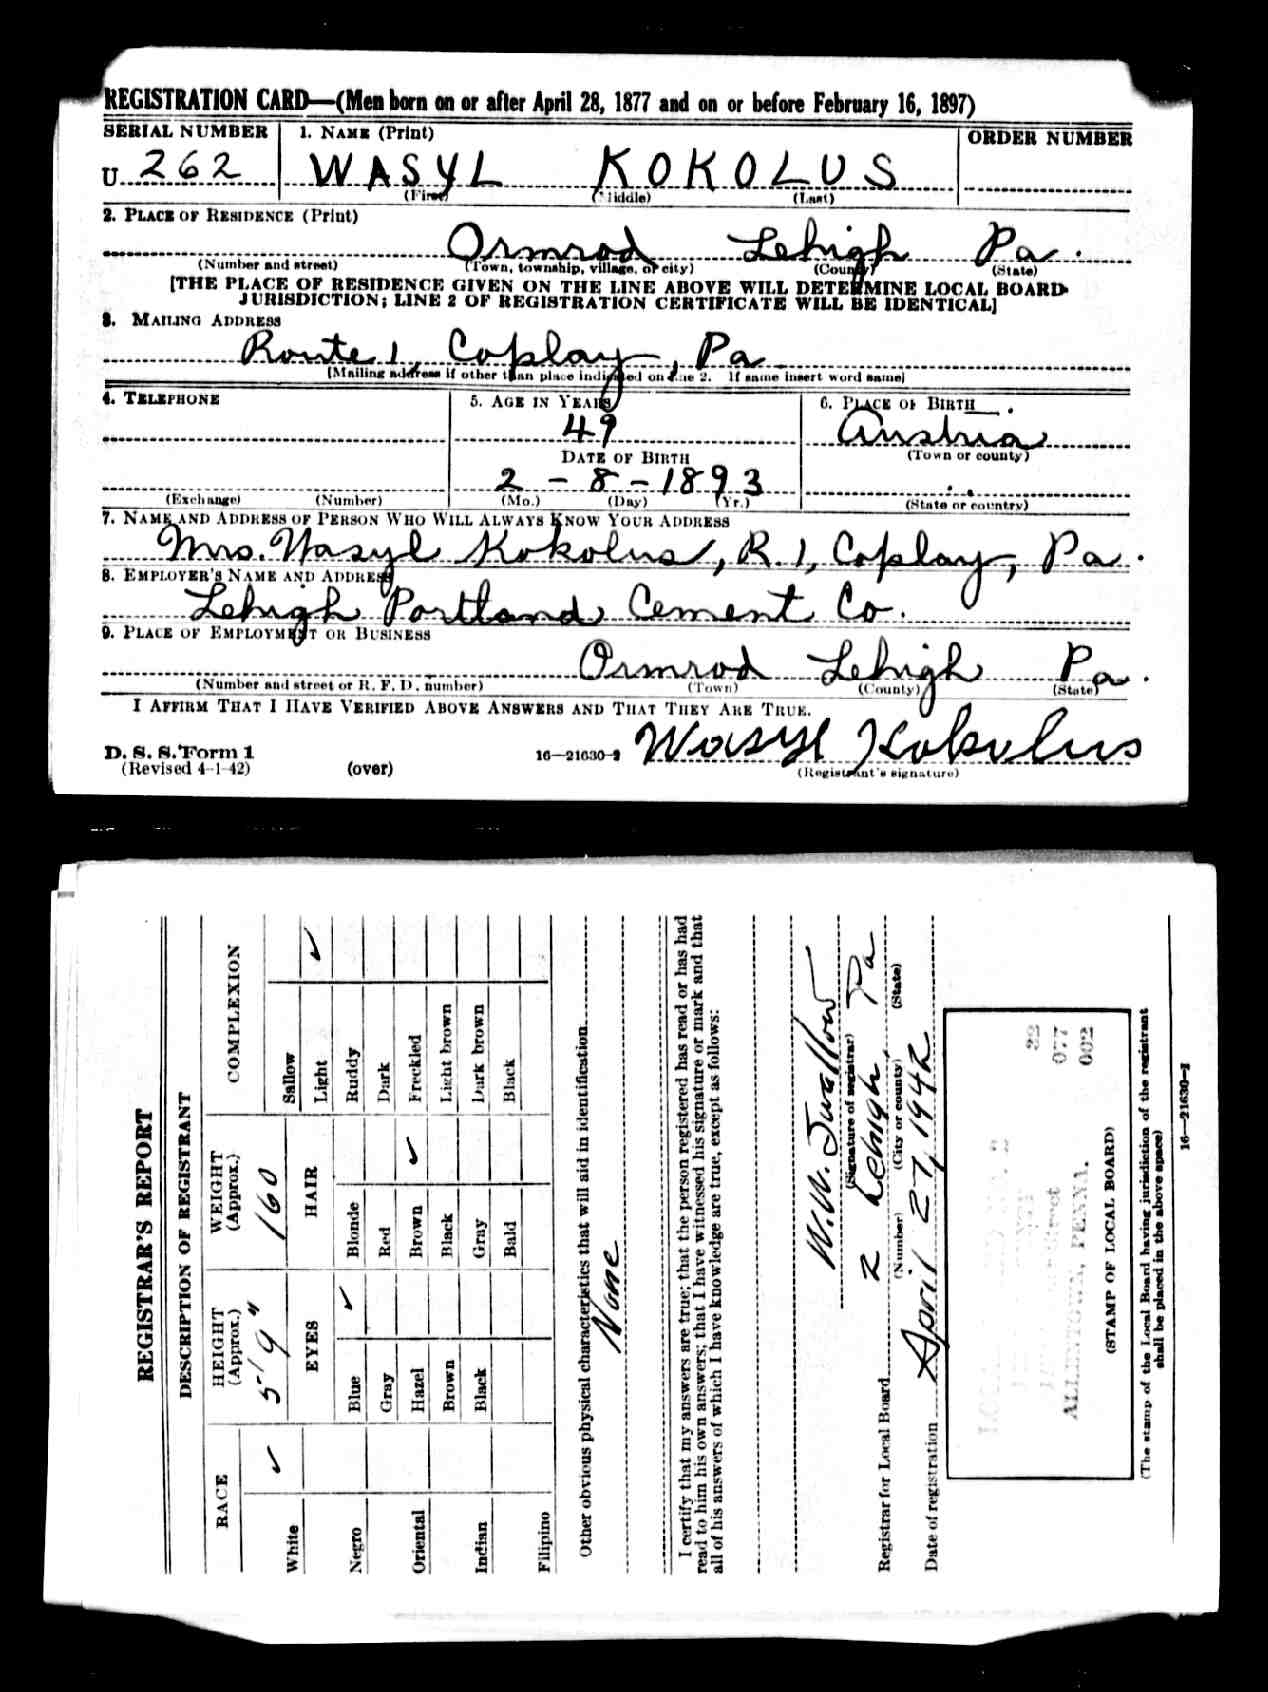 REGISTRATION CARD—(Men born on or after April 28, 1877 and on or before February 16, 1897)
SERIAL NUMBER 1. NAME (Print) ORDER NUMBER
U 262 WASYL KOKOLUS
(First) (Middle) (Last)
2. PLACE OF RESIDENCE (Print)
Ormrod Lehigh Pa.
(Number and street) (Town, township, village, or city) (County) (State)
[THE PLACE OF RESIDENCE GIVEN ON THE LINE ABOVE WILL DETERMINE LOCAL BOARD
JURISDICTION; LINE 2 OF REGISTRATION CERTIFICATE WILL BE IDENTICAL]
3. MAILING ADDRESS
Route 1, Coplay, Pa
(Mailing address if other than place indicated on line 2. If same insert word same)
4. TELEPHONE 5. AGE IN YEARS 6. PLACE OF BIRTH
49 Austria
DATE OF BIRTH (Town or county)
2 - 8 - 1893
(Exchange) (Number) (Mo.) (Day) (Yr.) (State or country)
7. NAME AND ADDRESS OF PERSON WHO WILL ALWAYS KNOW YOUR ADDRESS
Mrs. Wasyl Kokolus, R. 1, Coplay, Pa.
8. EMPLOYER'S NAME AND ADDRESS
Lehigh Portland Cement Co.
9. PLACE OF EMPLOYMENT OR BUSINESS
Ormrod Lehigh Pa.
(Number and street or R. F. D. number) (Town) (County) (State)
I AFFIRM THAT I HAVE VERIFIED ABOVE ANSWERS AND THAT THEY ARE TRUE.
D. S. S. Form 1
(Revised 4-1-42) (over) 16—21630-2 Wasyl Kokolus
(Registrant's signature)
REGISTRAR'S REPORT
DESCRIPTION OF REGISTRANT
RACE HEIGHT (Approx.) WEIGHT (Approx.) COMPLEXION
5' 9" 160
White ✓ EYES HAIR Sallow
Light ✓
Negro Blue ✓ Blonde Ruddy
Gray Red Dark
Oriental Hazel Brown ✓ Freckled
Brown Black Light brown
Indian Black Gray Dark brown
Bald Black
Filipino
Other obvious physical characteristics that will aid in identification
None
I certify that my answers are true; that the person registered has read or has had
read to him his own answers; that I have witnessed his signature or mark and that
all of his answers of which I have knowledge are true, except as follows:
W.W. Swallow
(Signature of registrar)
Registrar for Local Board 2 Lehigh Pa
(Number) (City or county) (State)
Date of registration April 27, 1942
22
077
002
ALLENTOWN, PENNA.
(STAMP OF LOCAL BOARD)
(The stamp of the Local Board having jurisdiction of the registrant
shall be placed in the above space)
16—21630-2